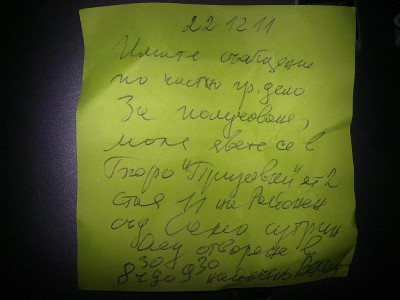 22 12 11
Имате съобщение
по частно гр. дело
За получаване,
моля явете се в
Бюро "Призовки" ет 2
стая 11 на Районен
съд Само сутрин
отваряне в
8 30 до 9 30